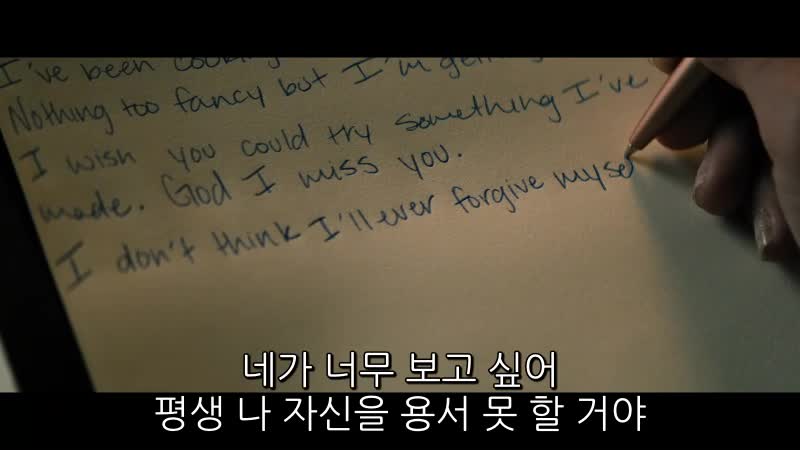 I've been cooking
Nothing too fancy but I'm
I wish you could try something I've
made. God I miss you.
I don't think I'll ever forgive myse
네가 너무 보고 싶어
평생 나 자신을 용서 못 할 거야